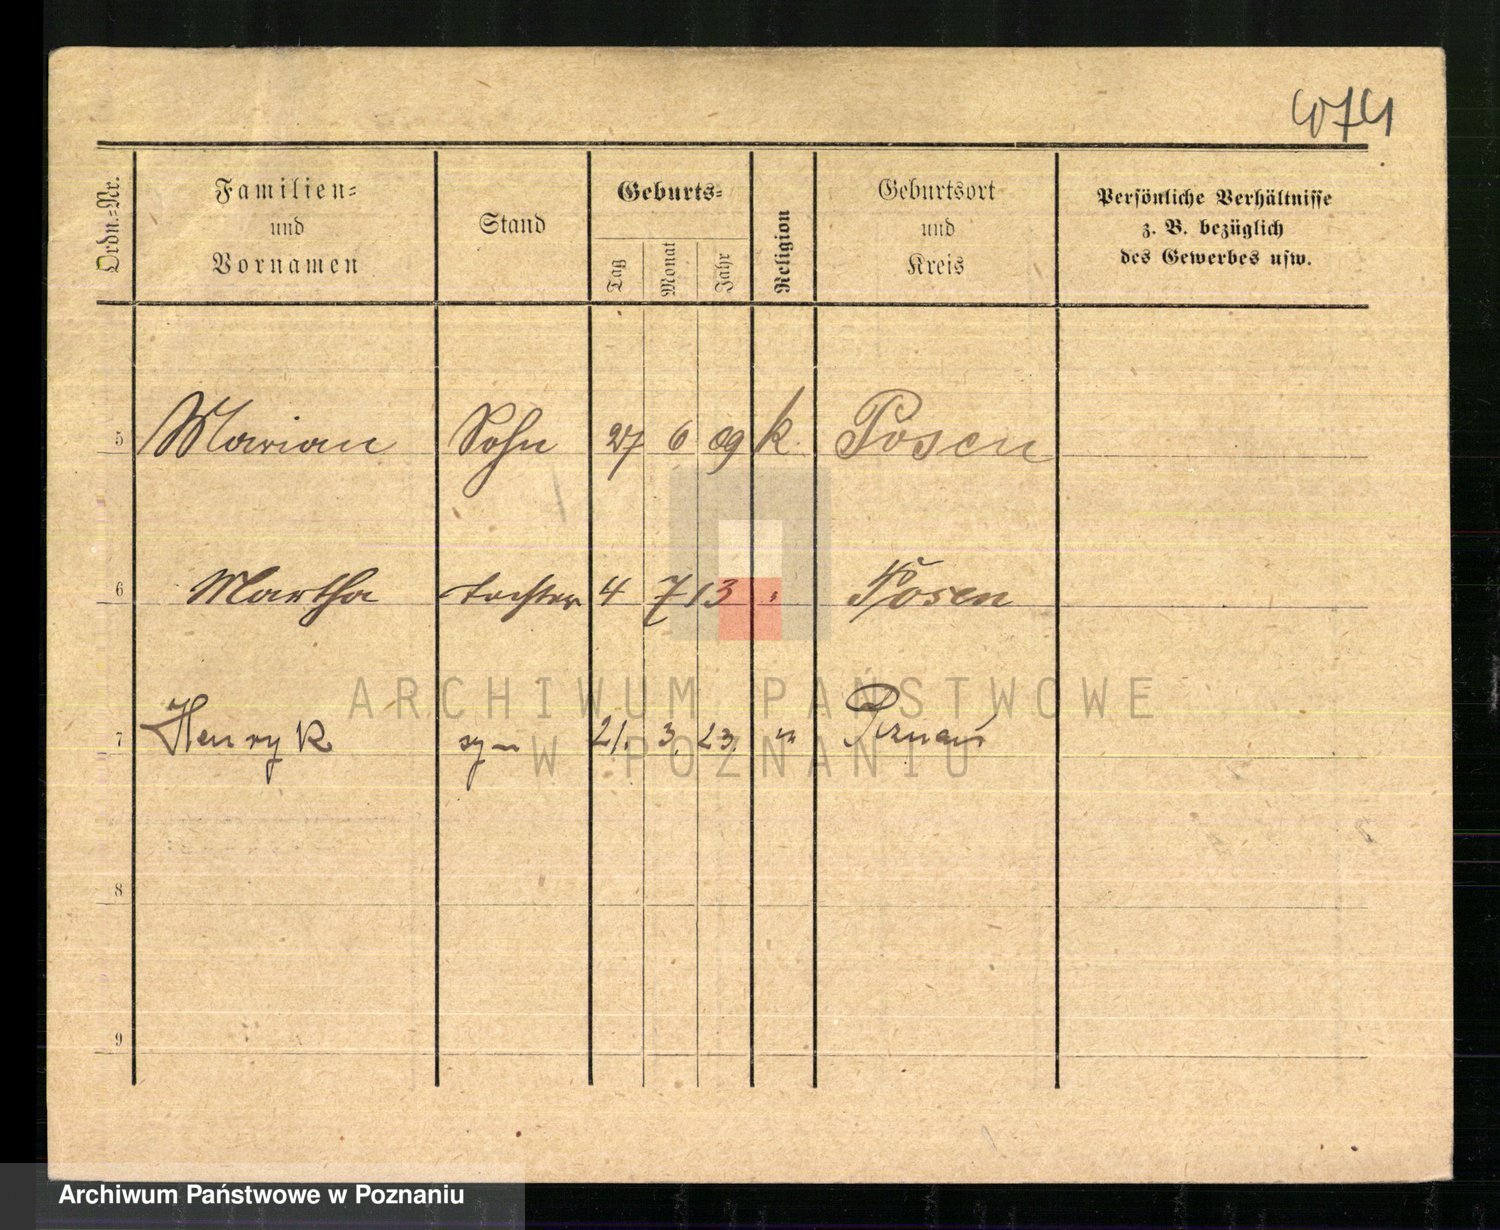 4074
Ordn.-Nr.
Familien-
und
Vornamen
Stand
Geburts-
Tag
Monat
Jahr
Religion
Geburtsort
und
Kreis
Persönliche Verhältnisse
z. B. bezüglich
des Gewerbes usw.
5 Marian Sohn 27 6 09 k. Posen
6 Martha Tochter 4 7 13 " Posen
ARCHIWUM PAŃSTWOWE
7 Henryk syn 21. 3. 23. " Poznań
W POZNANIU
8
9
Archiwum Państwowe w Poznaniu